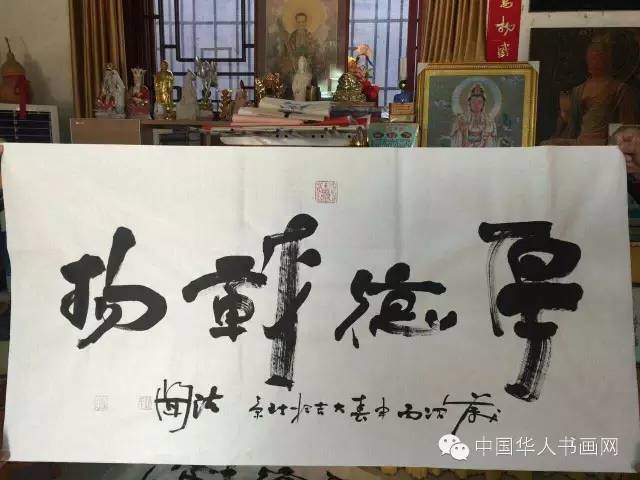 厚德載物
歲次丙申春大吉於北京
中国华人书画网